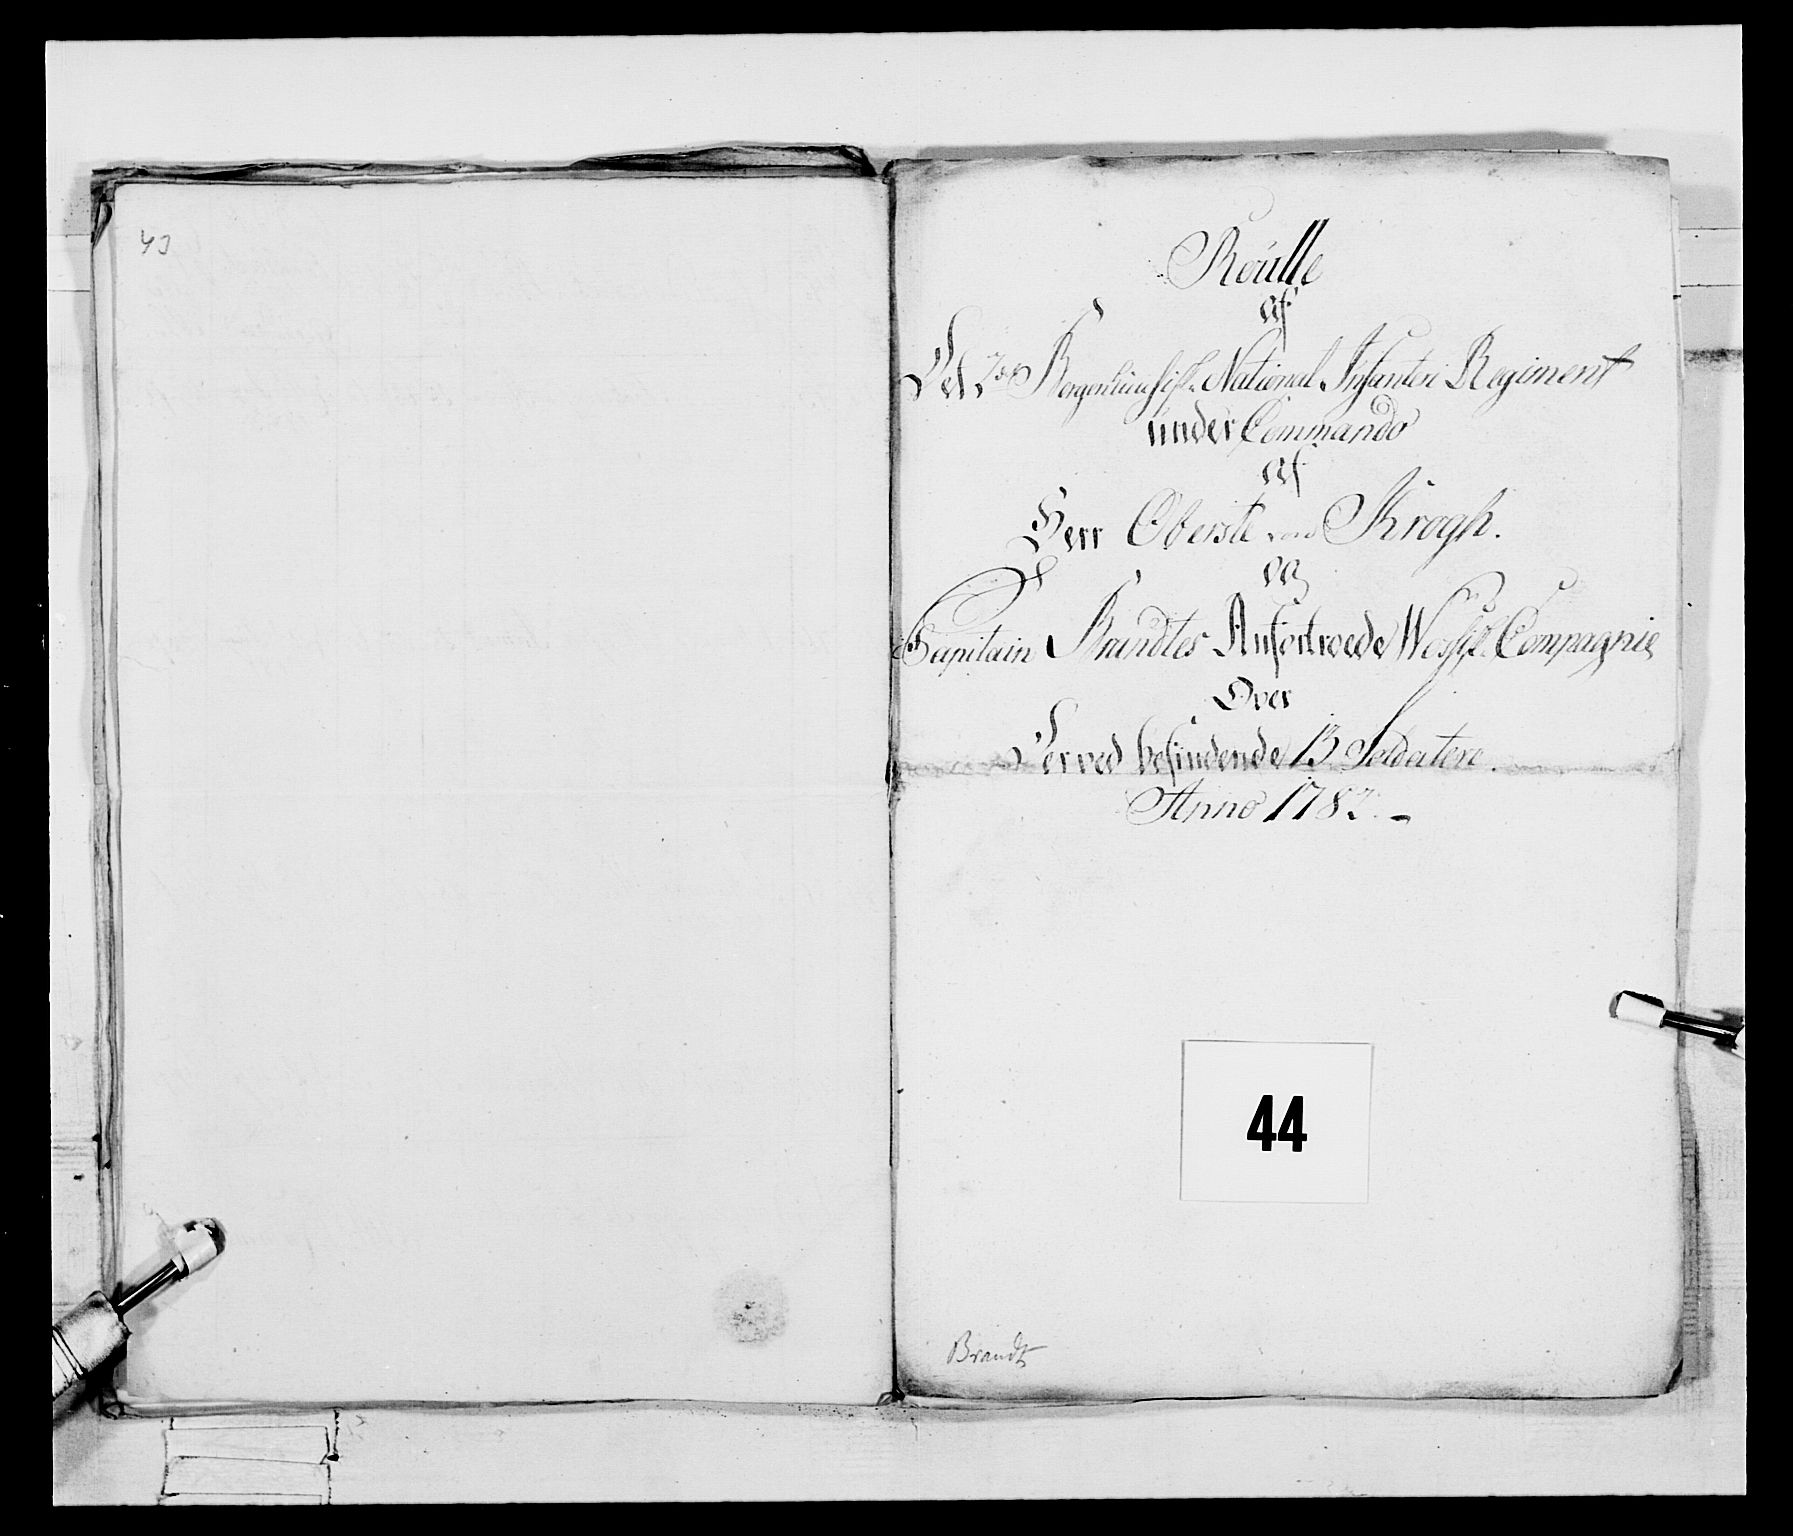 43
Roulle
af
Det 2de Bergenhuusiske National Infanterie Regiment
under Commando
af
Herr Oberste von Krogh.
og
Capitain Brandtes Anfortroede Wossiske Compagnie
Over
Derved befindende 13 Soldatere.
Anno 1782. -
44
Brandt